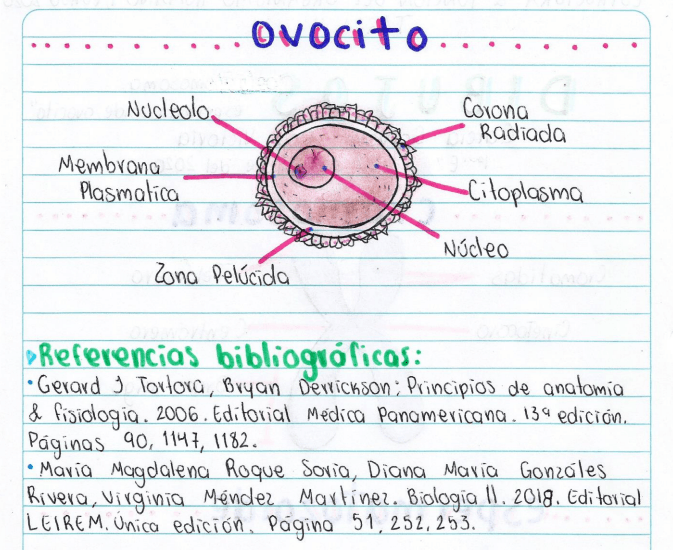 ovocito
Nucleolo
Corona
Radiada
Membrana
Plasmatica
Citoplasma
Núcleo
Zona Pelúcida
Referencias bibliográficas:
• Gerard J Tortora, Bryan Derrickson; Principios de anatomía
& fisiología. 2006. Editorial Médica Panamericana. 13ª edición.
Páginas 90, 1147, 1182.
• María Magdalena Roque Soria, Diana María Gonzáles
Rivera, Virginia Méndez Martínez. Biología II. 2018. Editorial
LEIREM. Única edición. Página 51, 252, 253.